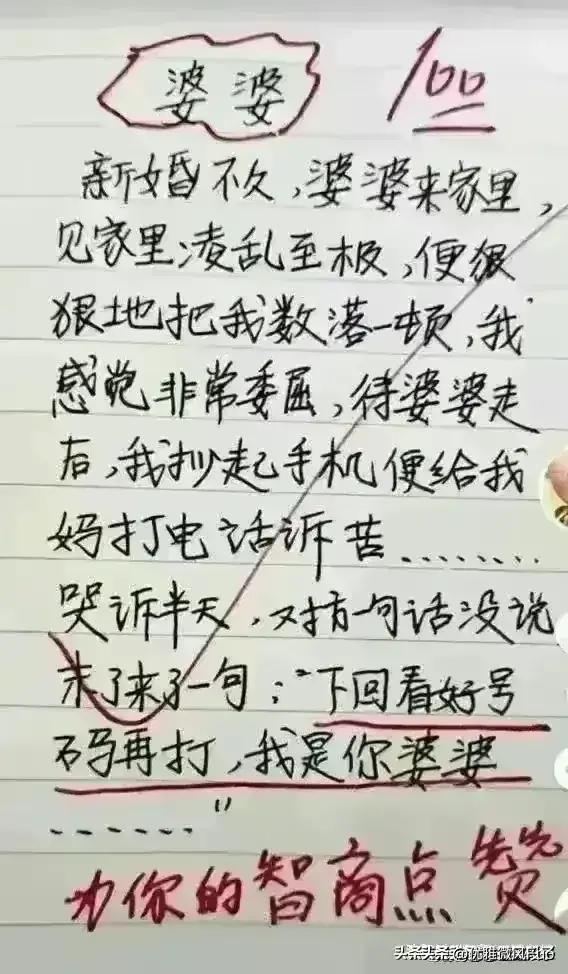 婆婆
100
新婚不久，婆婆来家里，
见家里凌乱至极，便狠
狠地把我数落一顿，我
感觉非常委屈，待婆婆走
后，我抄起手机便给我
妈打电话诉苦........
哭诉半天，对方一句话没说
末了来了一句："下回看好号
码再打，我是你婆婆
........"
为你的智商点赞
头条@优雅微风段bb